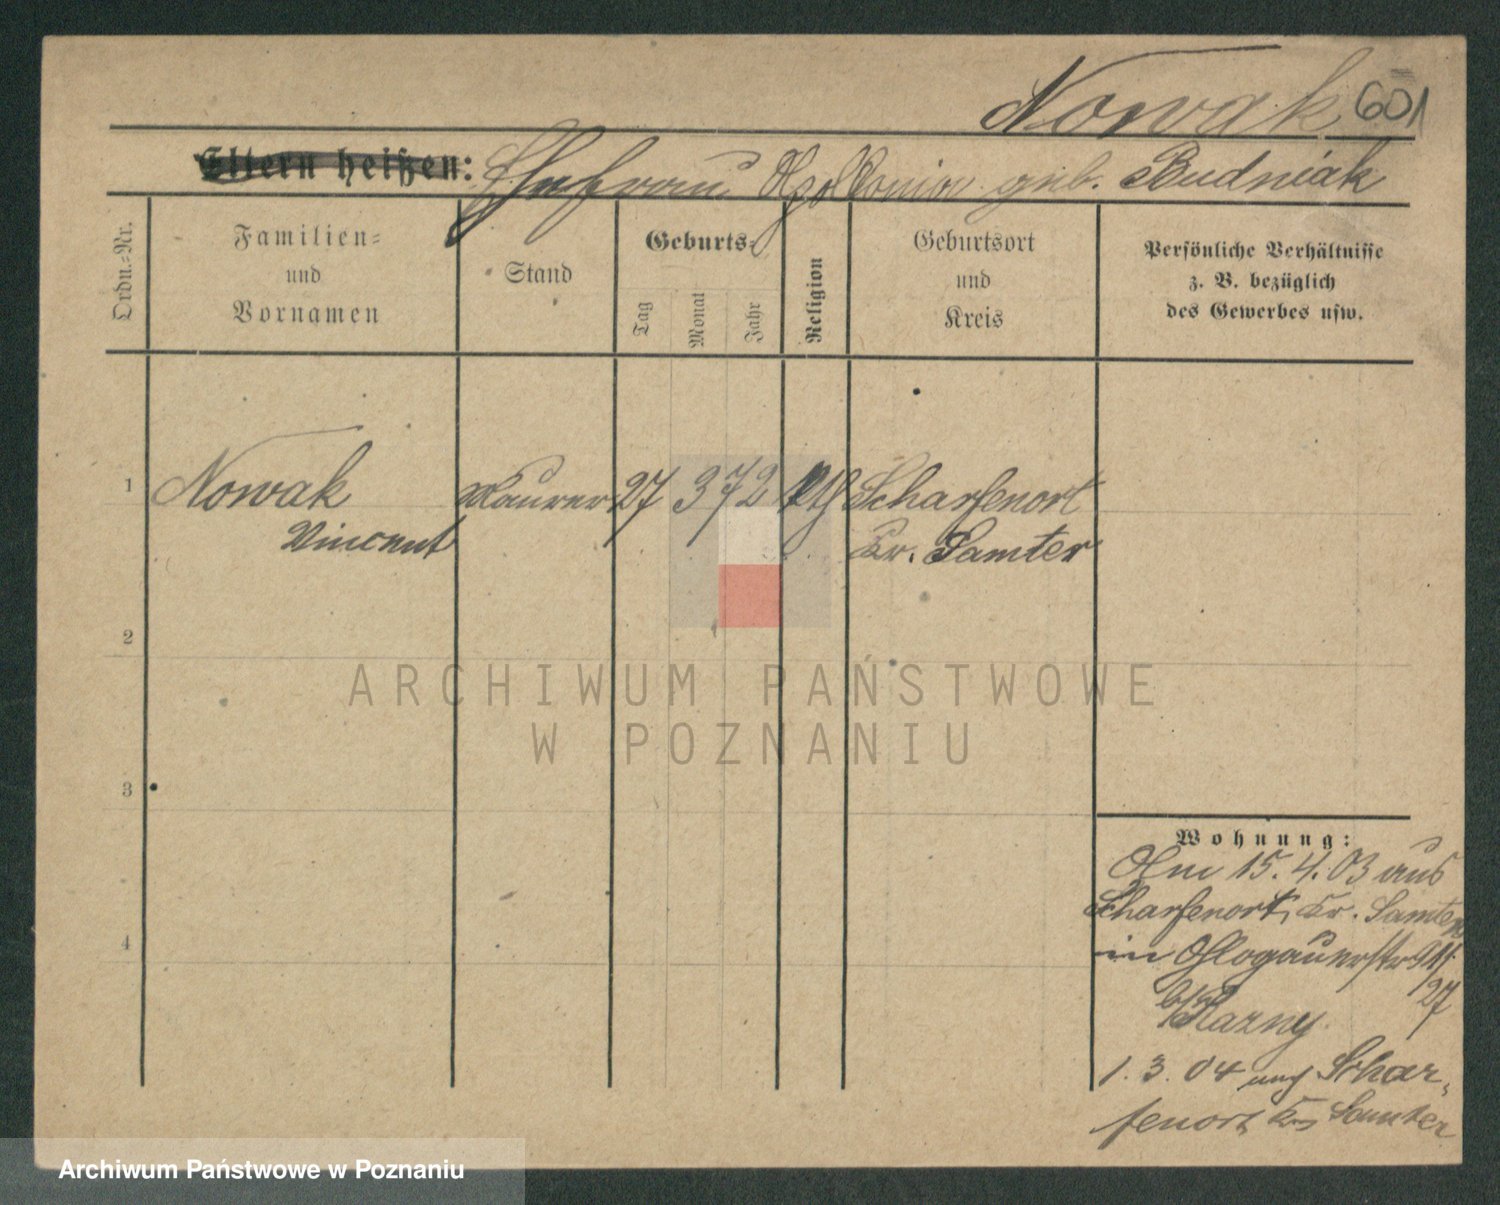 Nowak 601
Eltern heißen: Ehefrau Apollonia geb. Budniak
Ordn.-Nr.
Familien-
und
Vornamen
Stand
Geburts-
Tag
Monat
Jahr
Religion
Geburtsort
und
Kreis
Persönliche Verhältnisse
z. B. bezüglich
des Gewerbes usw.
1 Nowak Maurer 27 3 72 kth Scharfenort
Vincent Kr. Samter
2
3
4
ARCHIWUM PAŃSTWOWE
W POZNANIU
Wohnung:
Am 15.4.03 aus
Scharfenort, Kr. Samter
in Glogauerstr
27
b/Razny
1.3.04 nach Schar-
fenort Kr Samter
Archiwum Państwowe w Poznaniu